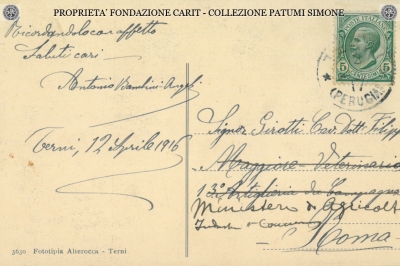 PROPRIETA' FONDAZIONE CARIT - COLLEZIONE PATUMI SIMONE
Ricordandolo con affetto
Saluti cari
Antonio Bambini Angeli
Terni, 12 Aprile 1916
POSTE ITALIANE
5 5
(PERUGIA)
Signor Girotti Cav. Dott. Filippo
Maggiore Veterinario
13° Artiglieria da Campagna
Ministero di Agricolt
Industria e Commercio
Roma
3630 Fototipia Alterocca - Terni